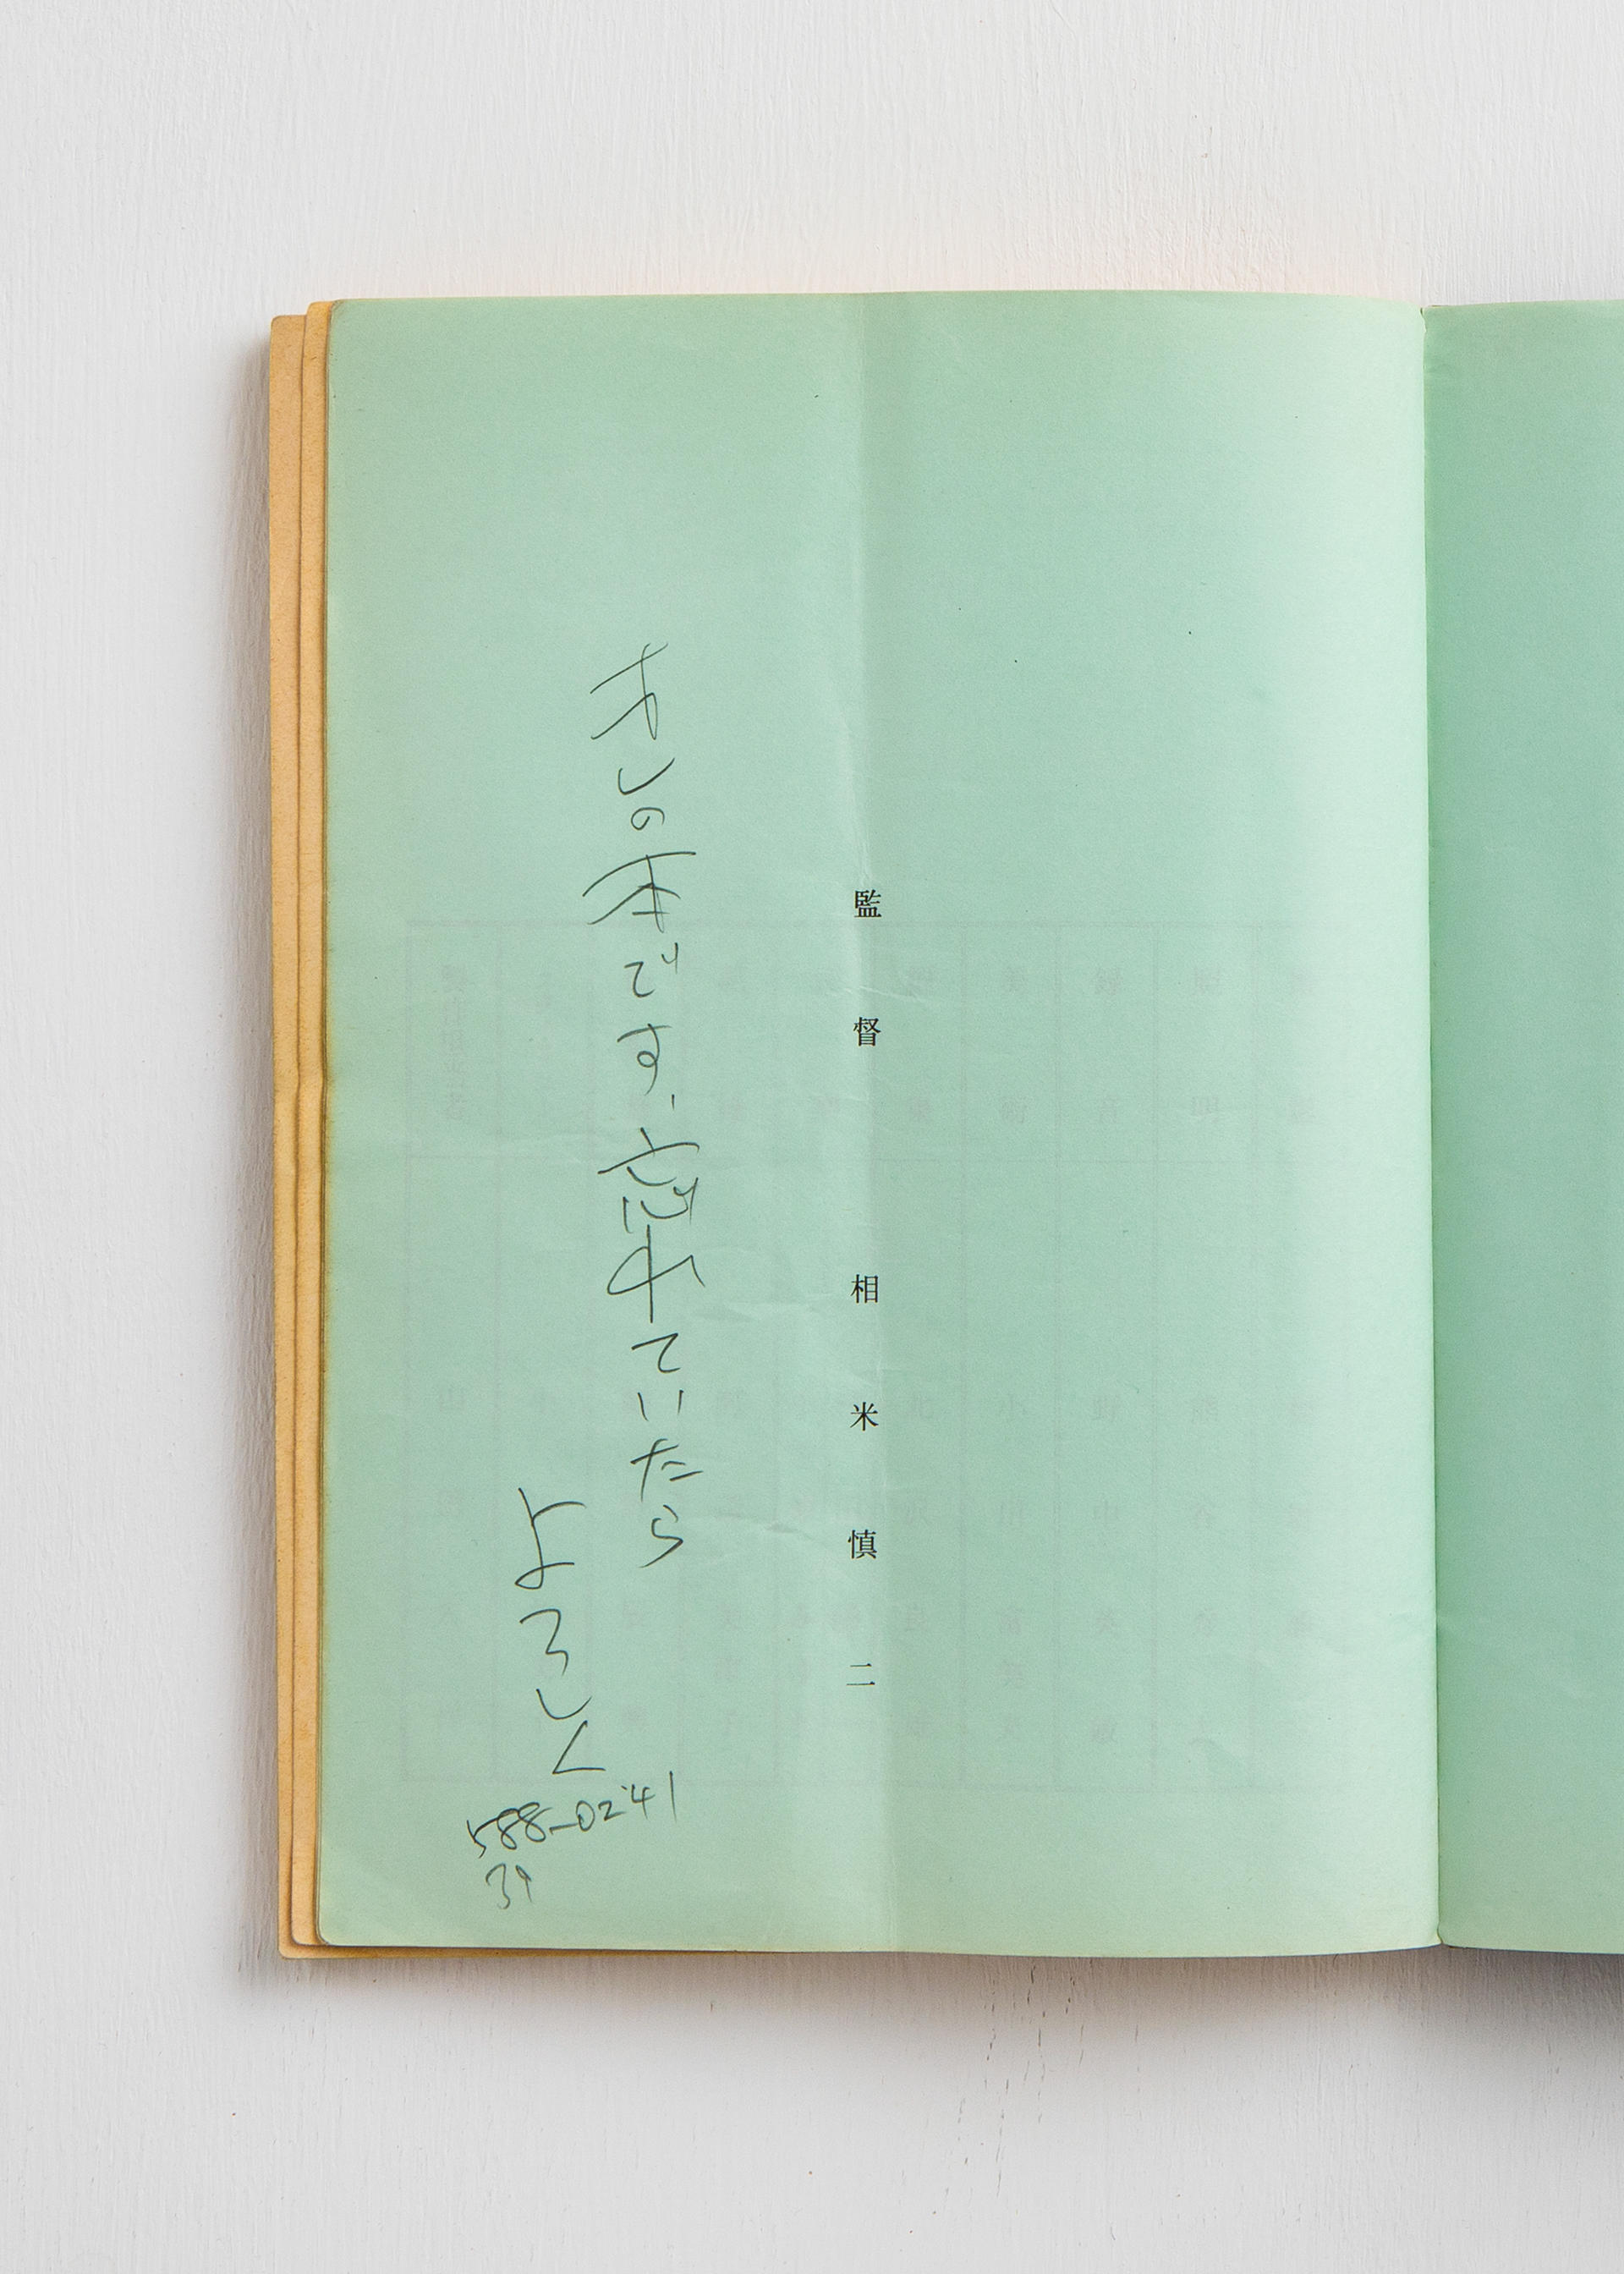 監督 相米慎二
オレの本です、忘れていたら
よろしく
588-0241
39